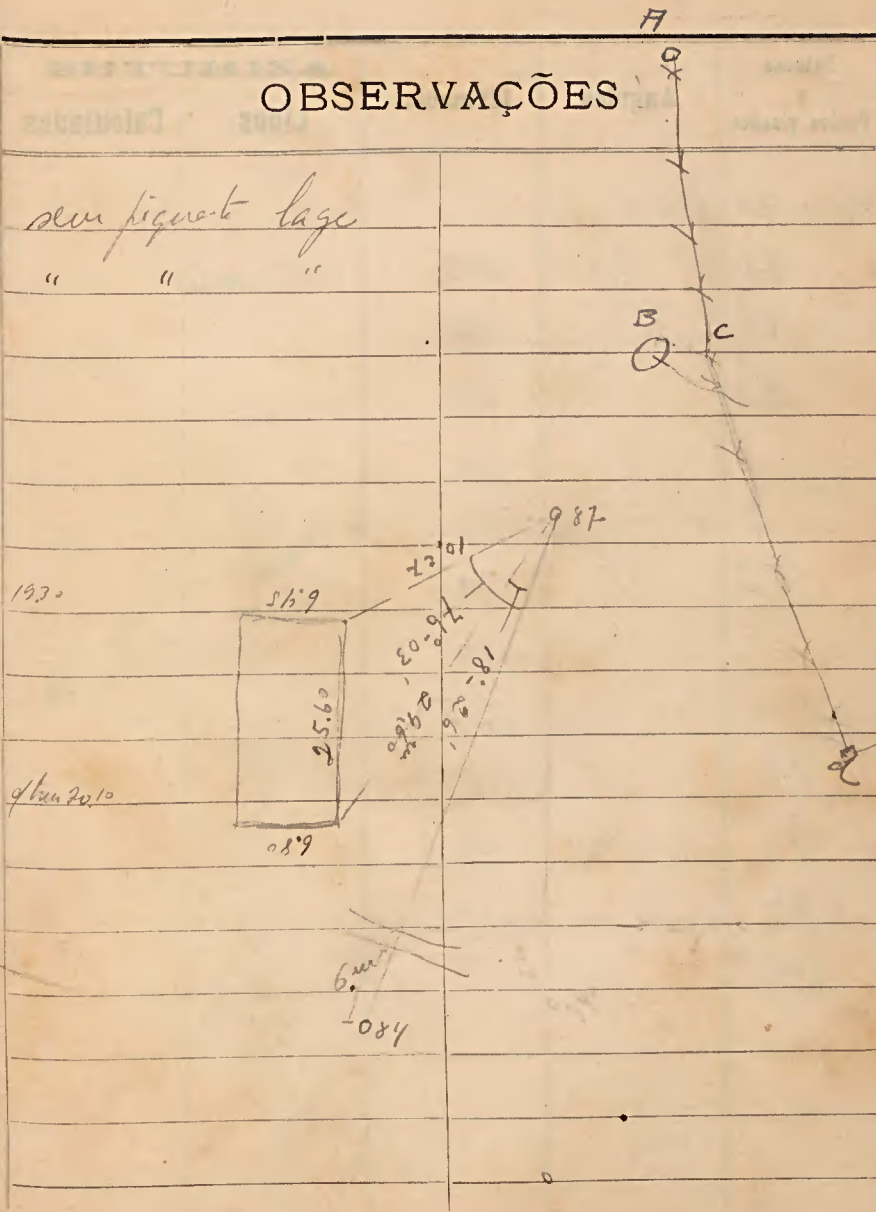 A
OBSERVAÇÕES
sem piquete lage
" " "
B C
987
10 27
1930
6.45
76º-03'
18º-26'
25.60
29m60
d
6.80
6m
-084